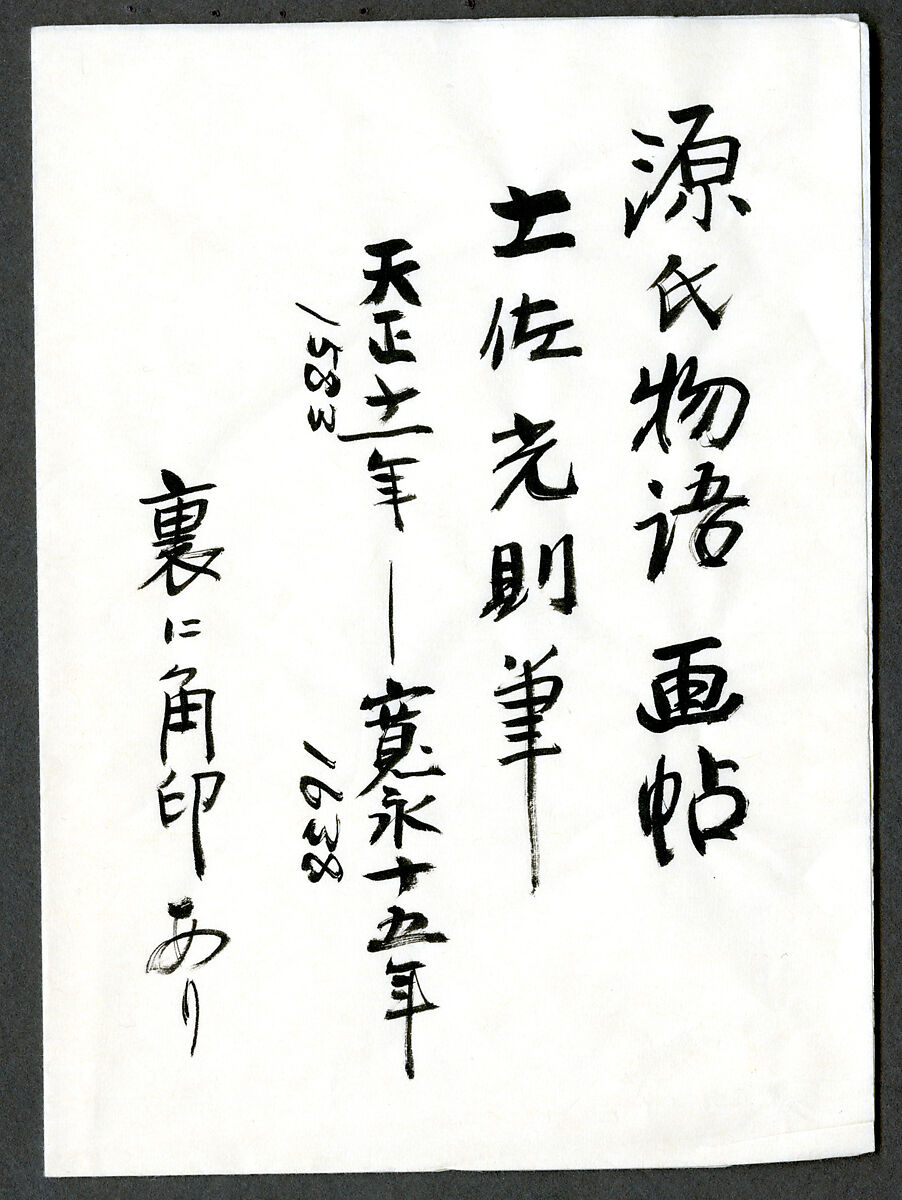 源氏物語 画帖
土佐光則筆
天正十一年―寛永十五年
1583 1638
裏に角印あり